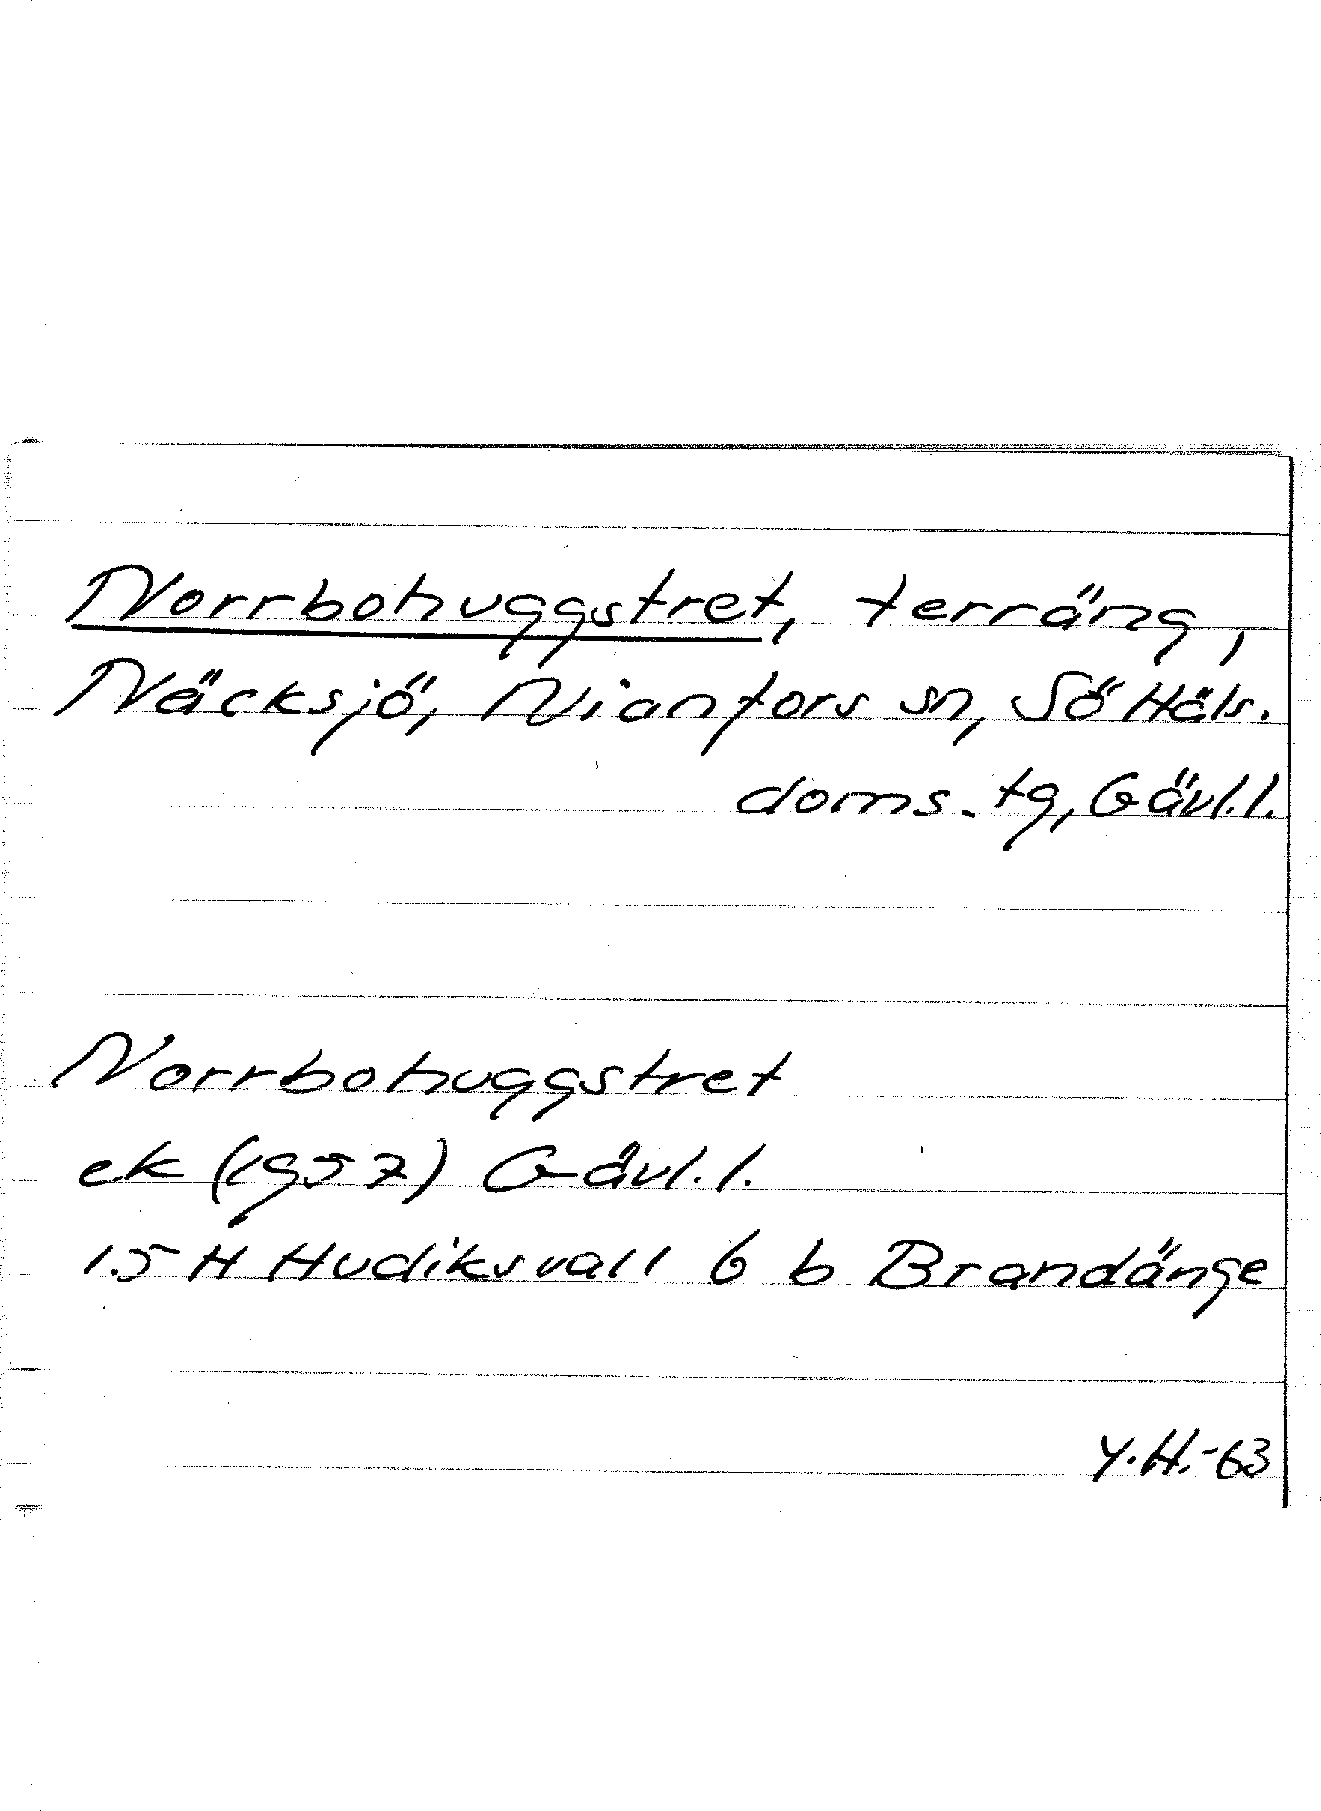 Norrbohuggstret, terräng,
Näcksjö, Nianfors sn, Sö Häls.
doms. tg, Gävl.l.
Norrbohuggstret
ek (1957) Gävl.l.
15 H Hudiksvall 6 b Brandänge
Y.H.-63